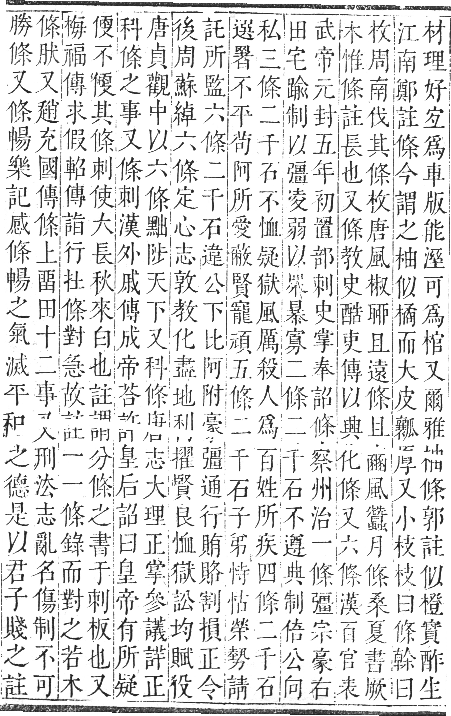 材理好宐爲車版能溼可爲棺又爾雅柚條郭註似橙實酢生
江南鄭註條今謂之柚似橘而大皮瓤厚又小枝枝曰條榦曰
枚周南伐其條枚唐風椒聊且遠條且豳風蠶月條桑夏書厥
木惟條註長也又條教史酷吏傳以典化條又六條漢百官表
武帝元封五年初置部刺史掌奉詔條察州治一條彊宗豪右
田宅踰制以彊凌弱以衆暴寡二條二千石不遵典制倍公向
私三條二千石不恤疑獄風厲殺人爲百姓所疾四條二千石
選署不平尚阿所愛蔽賢寵頑五條二千石子弟恃怙榮勢請
託所監六條二千石違公下比阿附豪彊通行賄賂割損正令
後周蘇綽六條定心志敦教化盡地利擢賢良恤獄訟均賦役
唐貞觀中以六條黜陟天下又科條唐志大理正掌參議詳正
科條之事又條刺漢外戚傳成帝荅許皇后詔曰皇帝有所疑
便不便其條刺使大長秋來白也註謂分條之書于刺板也又
梅福傳求假軺傳詣行扗條對急故註一一條錄而對之若木
條肰又趙充國傳條上畱田十二事又刑法志亂名傷制不可
勝條又條暢樂記感條暢之氣滅平和之德是以君子賤之註